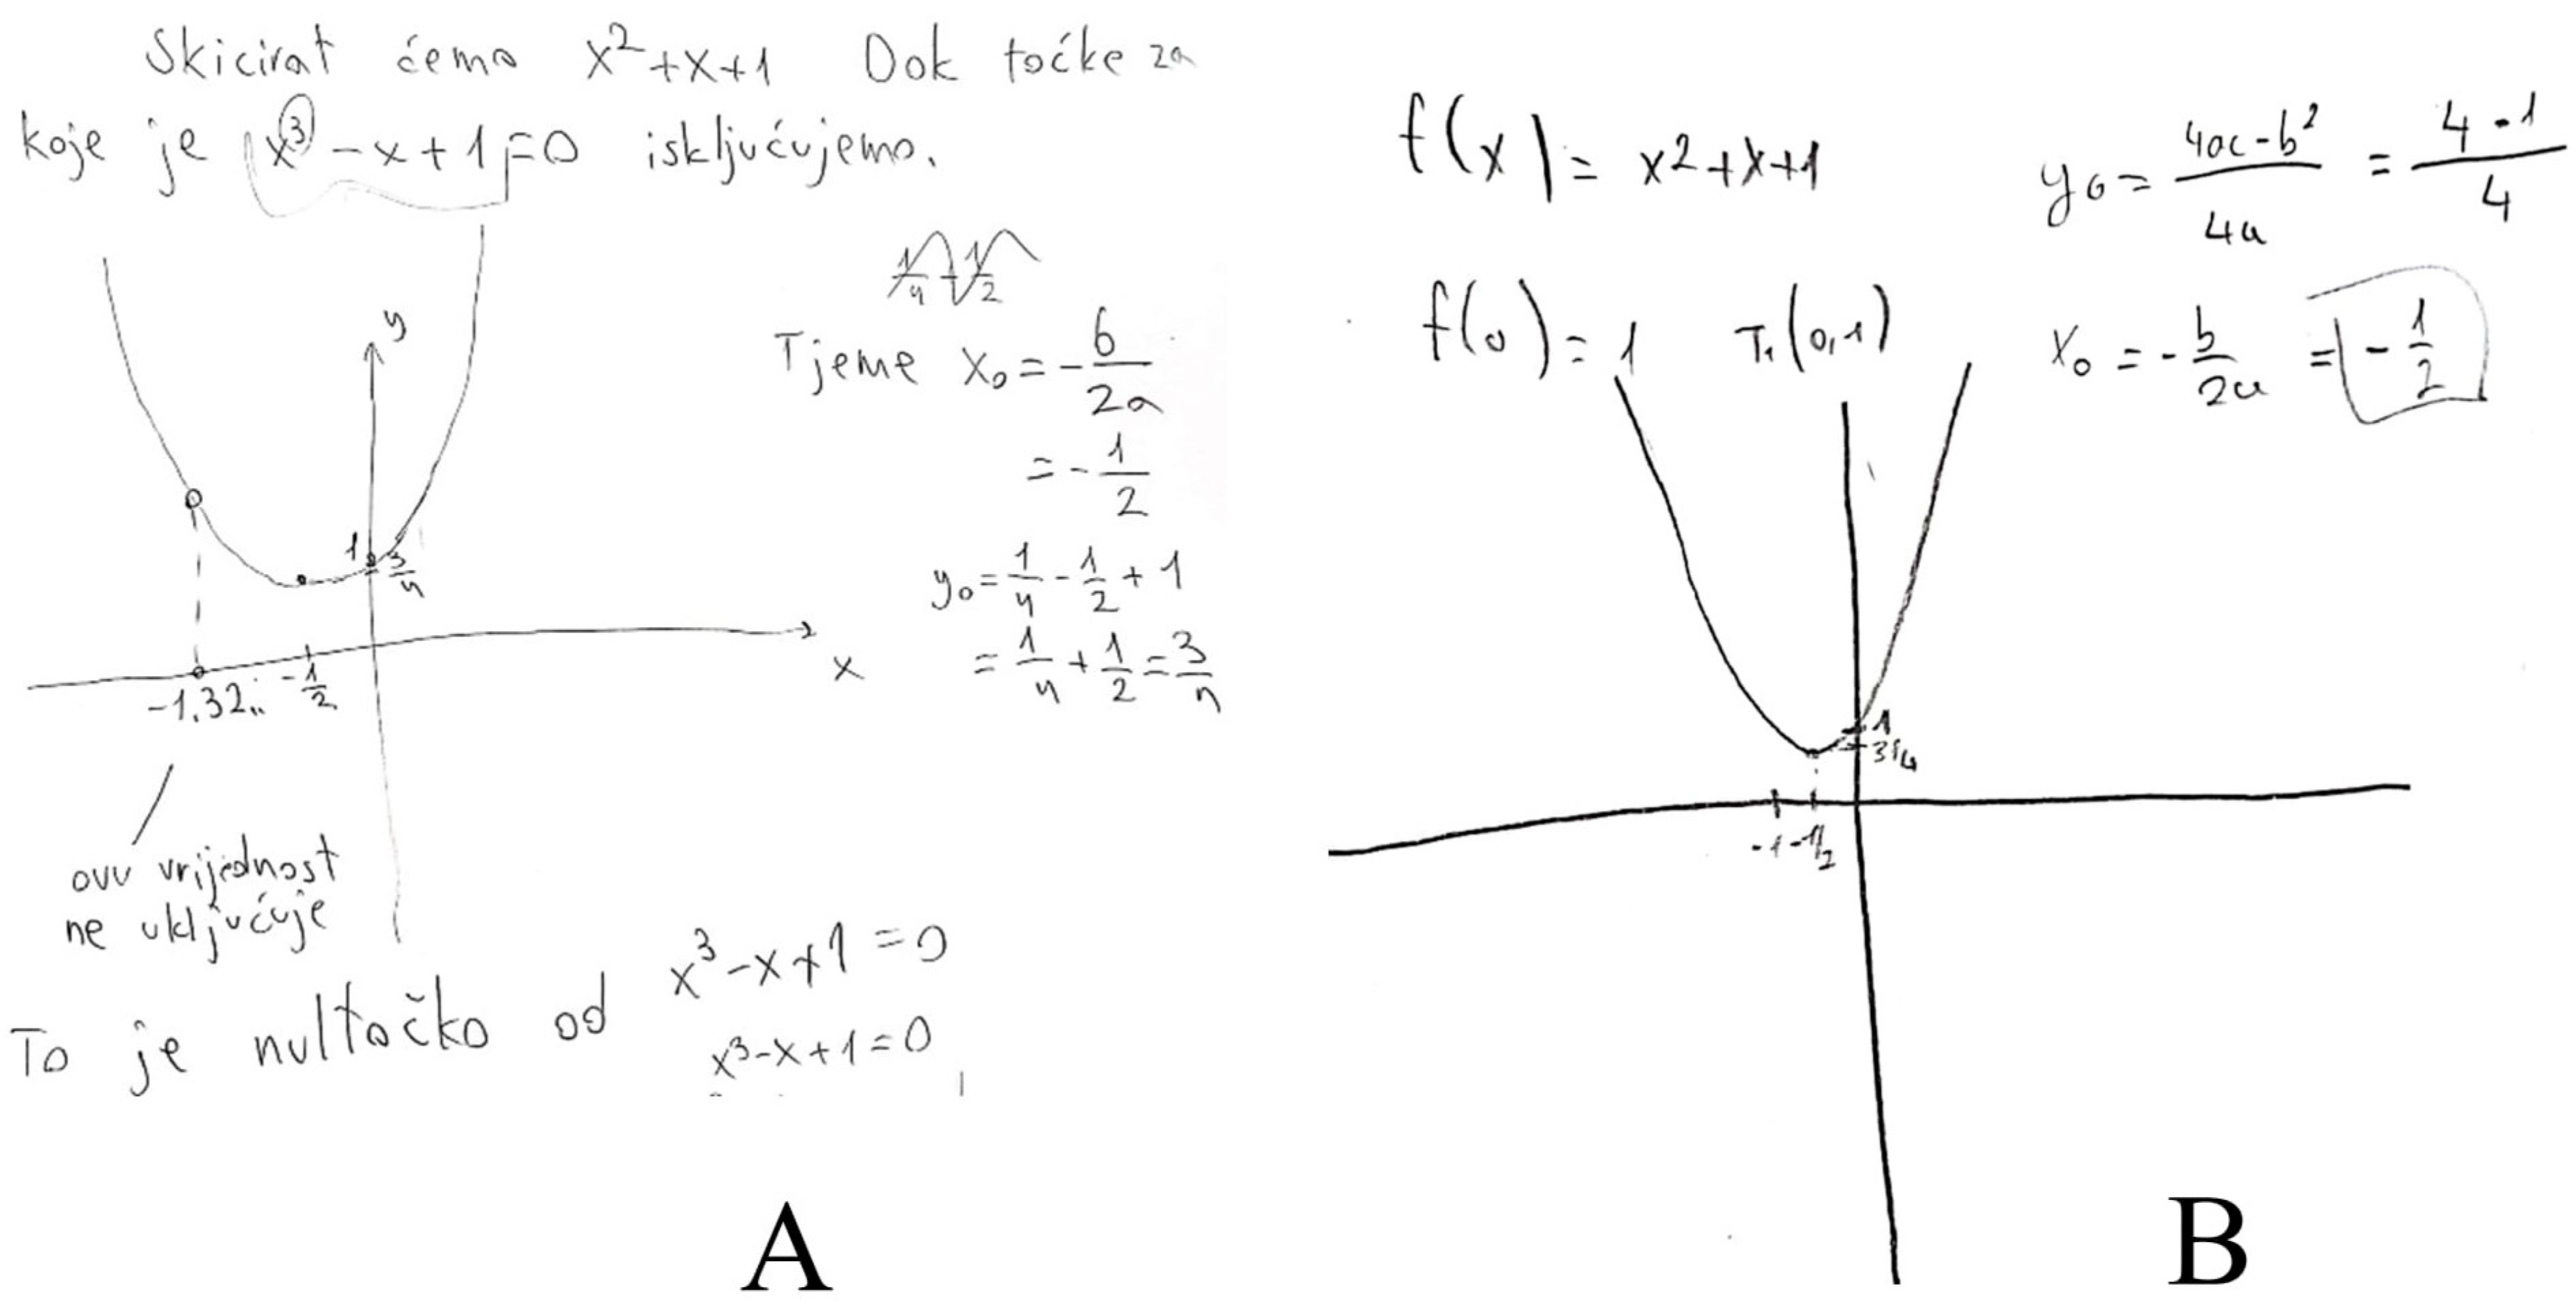 Skicirat ćemo x²+x+1 Dok točke za
koje je x³-x+1=0 isključujemo.
y
Tjeme x₀=-b/2a
=-1/2
y₀=1/4-1/2+1
=1/4+1/2=3/4
1
3/4
x
-1.32.. -1/2
ovu vrijednost
ne uključuje
To je nultočka od x³-x+1=0
x³-x+1=0
A
f(x)=x²+x+1
y₀=4ac-b²/4a=4-1/4
f(0)=1 T₁(0,1)
x₀=-b/2a=-1/2
1
3/4
-1 -1/2
B